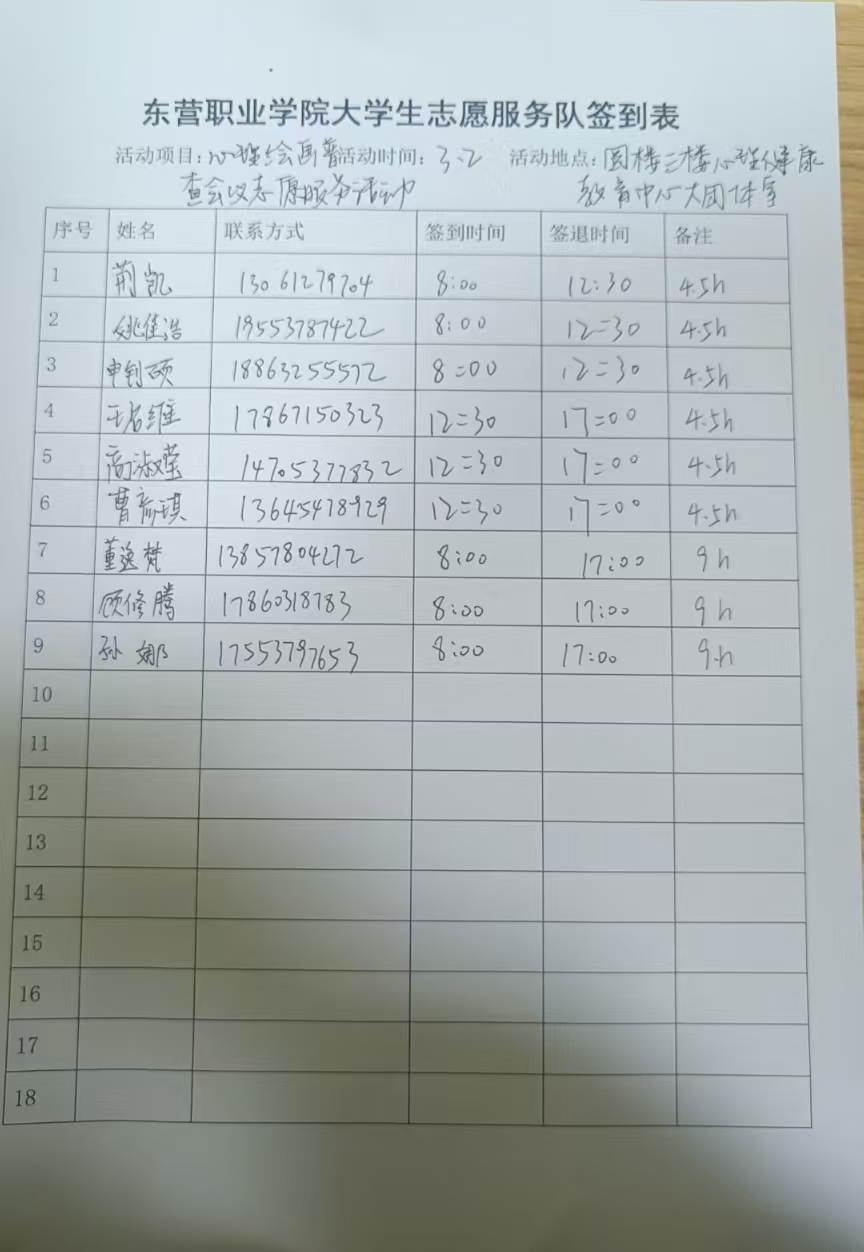 东营职业学院大学生志愿服务队签到表
活动项目:心理绘画普 活动时间:3.2 活动地点:圆楼三楼心理健康
查会议志愿服务活动 教育中心大团体室
序号 姓名 联系方式 签到时间 签退时间 备注
1 荆凯 13061279704 8:00 12:30 4.5h
2 姚佳浩 19553787422 8:00 12:30 4.5h
3 申钊硕 18863255572 8:00 12:30 4.5h
4 王名维 17867150323 12:30 17:00 4.5h
5 商淑莹 14705377832 12:30 17:00 4.5h
6 曹彦琪 13645478929 12:30 17:00 4.5h
7 董逸梵 13857804272 8:00 17:00 9h
8 顾修腾 17860318783 8:00 17:00 9h
9 孙娜 17553797653 8:00 17:00 9h
10
11
12
13
14
15
16
17
18